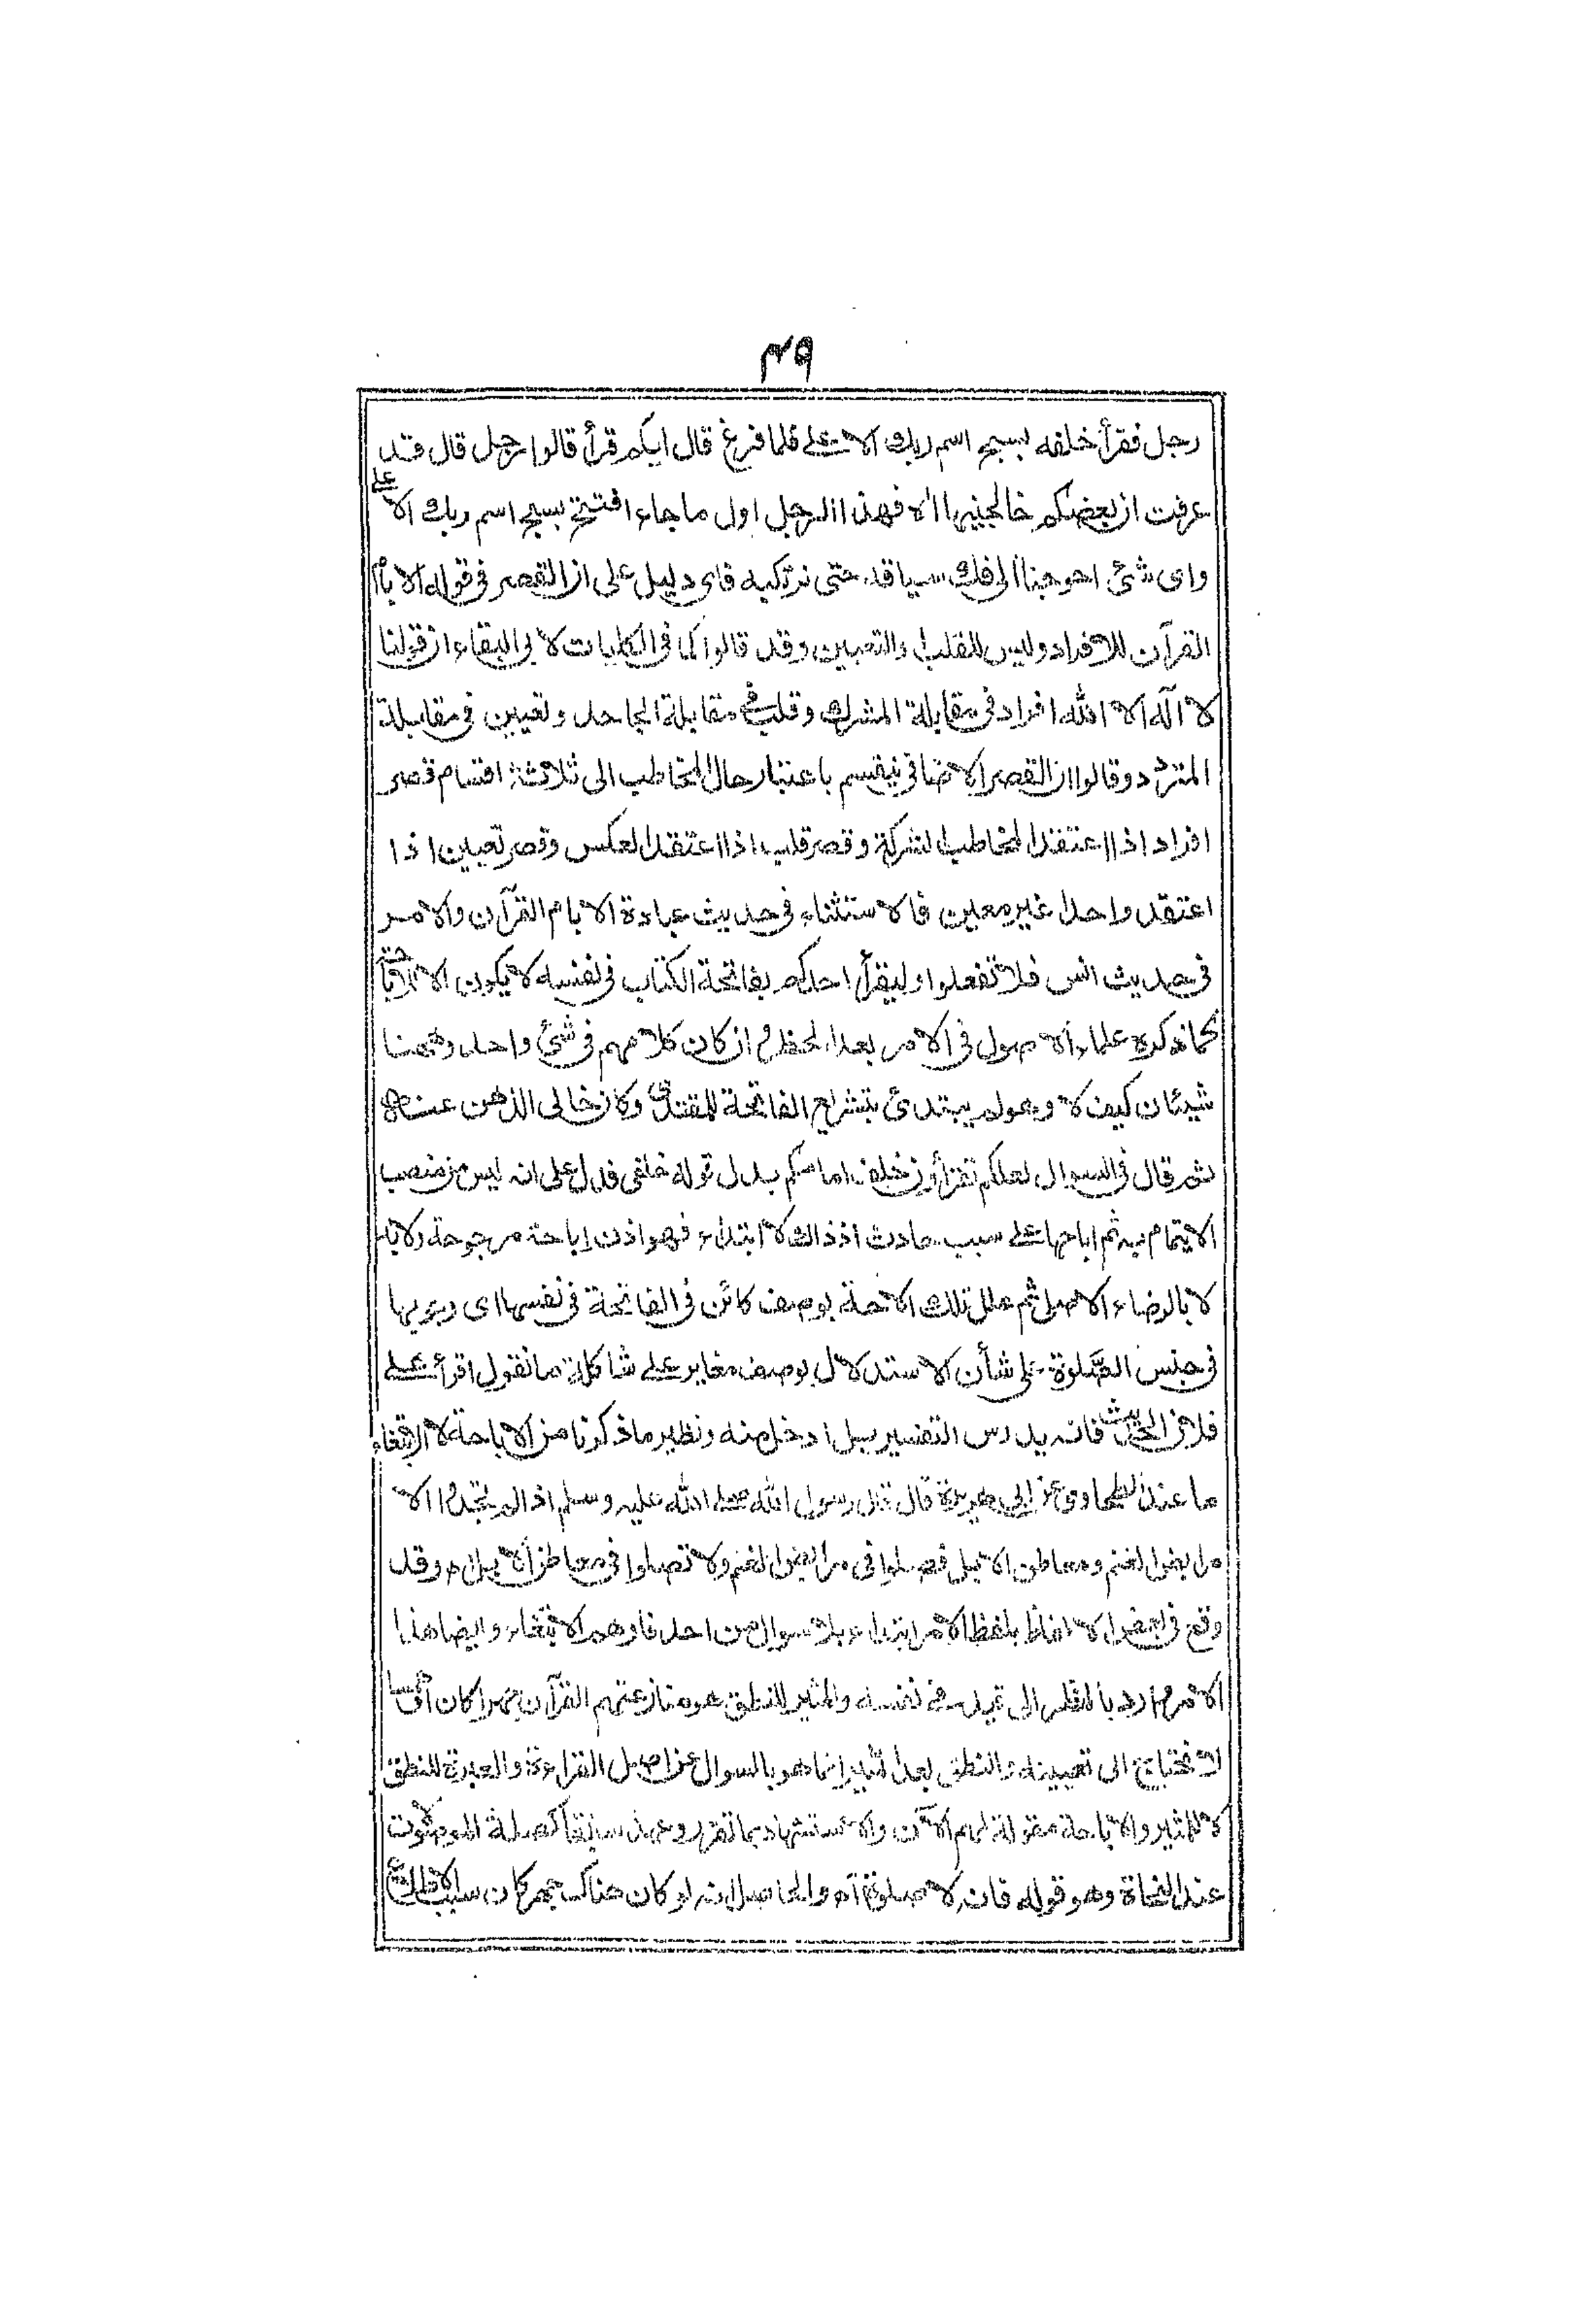 ٤٩
رجل فقرأ خلفه بسبح اسم ربك الاعلى فلما فرغ قال ايكم قرأ قالوا رجل قال قد
عرفت ان بعضكم خالجنيها اه فهذا الرجل اول ما جاء افتتح بسبح اسم ربك الاعلى
واى شئ احوجنا الى فك سياقه حتى نرتكبه فاى دليل على ان القصر فى قوله الا بأم
القرآن للافراد وليس للقلب والتعيين وقد قالوا كما فى الكليات لابى البقاء ان قولنا
لا آله الا الله افراد فى مقابلة المشرك وقلب فى مقابلة الجاحد وتعيين فى مقابلة
المتردد وقالوا ان القصر الاضافى ينقسم باعتبار حال المخاطب الى ثلاثة اقسام قصر
افراد اذا اعتقد المخاطب الشركة وقصر قلب اذا اعتقد العكس وقصر تعيين اذا
اعتقد واحدا غير معين فالاستثناء فى حديث عبادة الا بام القرآن والامر
فى حديث انس فلا تفعلوا وليقرأ احدكم بفاتحة الكتاب فى نفسه لا يكون الا اباحة
كما ذكره علماء الاصول فى الامر بعد الحظر وان كان كلامهم فى شئ واحد وههنا
شيئان كيف لا وهو لم يبتدئ بتشريع الفاتحة للمقتدى وكان خالى الذهن عنه
ثم قال فى السوال لعلكم تقرأون خلف امامكم بدل قوله خلفى فدل على انه ليس من منصب
الايتمام به ثم اباحها على سبب حادث اذ ذاك لا ابتداء فهو اذن اباحة مرجوحة ولابد
لا بالرضاء الاصلى ثم علل تلك الاباحة بوصف كائن فى الفاتحة فى نفسها اى وجوبها
فى جنس الصلوة على شأن الاستدلال بوصف مغاير على شاكلة ما نقول اقرأ على
فلان الحديث فانه يدرس التفسير بل ادخل منه ونظير ما ذكرنا من الاباحة لا الاقتفاء
ما عند الطحاوى عن ابى هريرة قال قال رسول الله صلى الله عليه وسلم اذا لم تجدوا الا
مرابض الغنم ومعاطن الابل فصلوا فى مرابض الغنم ولا تصلوا فى معاطن الابل اه وقد
وقع فى بعض الالفاظ بلفظ الامر ابتداء بلا سوال من احد فاوهم الاقتفاء وايضا هذا
الامر وارد بالنظر الى قيد فى نفسه والمثير للنطق هو منازعتهم القرآن جهرا كان او سرا
لا تحتاج الى تعيينه والنطق بعد المثير انما هو بالسوال عن اصل القراءة والعبرة للنطق
لا للمثير والاباحة مقولة لهم الآن والاستشهاد بما تقرر وعهد سابقا كصلة الموصولات
عند النحاة وهو قوله فان لا صلوة اه والحاصل انه لو كان هناك جهر كان سببا